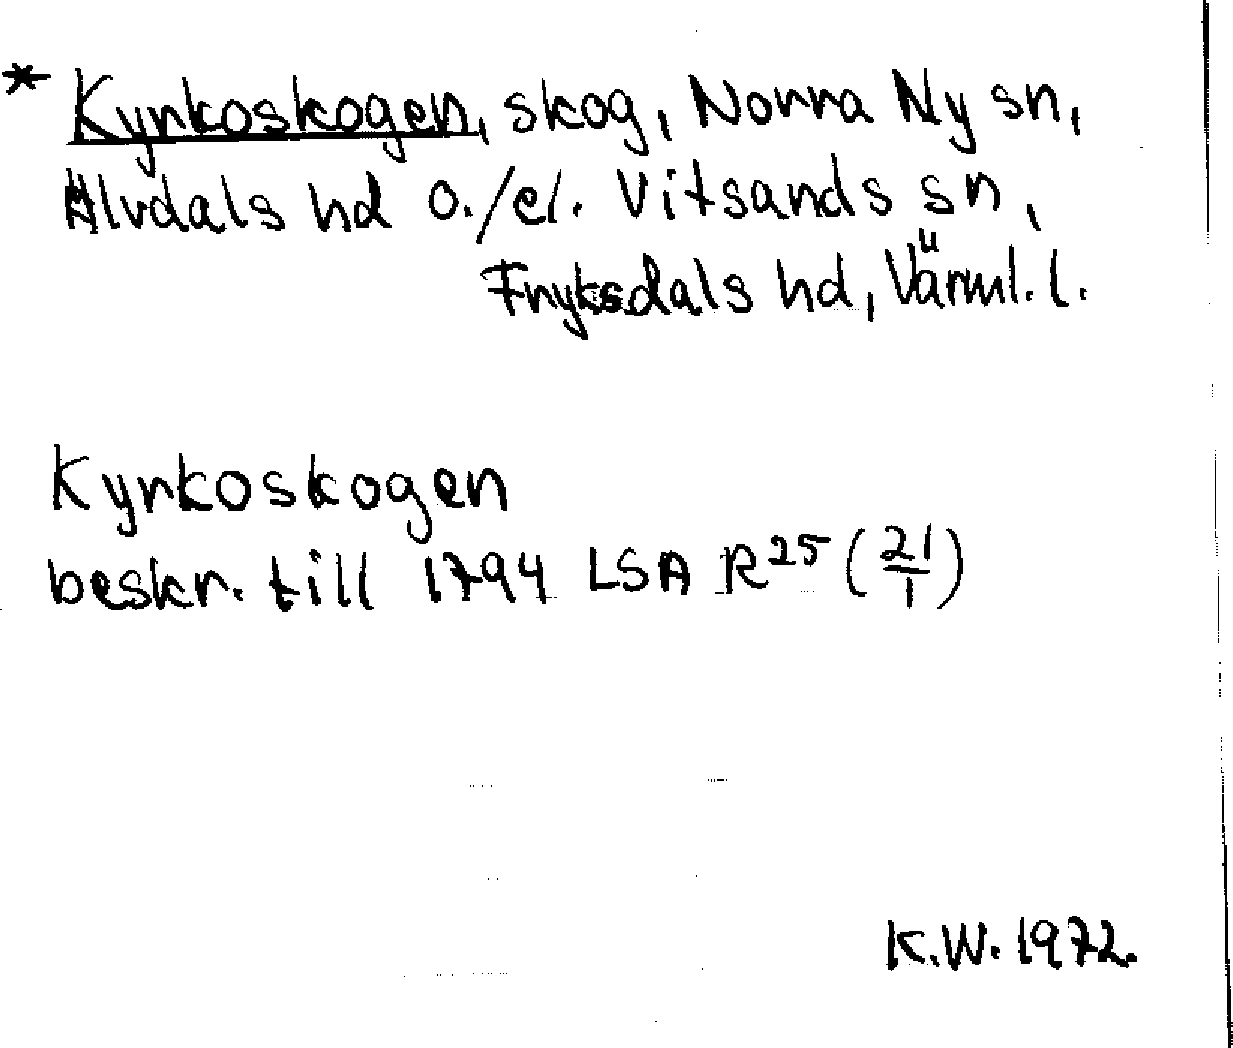 * Kyrkoskogen, skog, Norra Ny sn,
Älvdals hd o./el. Vitsands sn,
Fryksdals hd, Värml. l.
Kyrkoskogen
beskr. till 1794 LSA R²⁵ (21/1)
K.W. 1972.